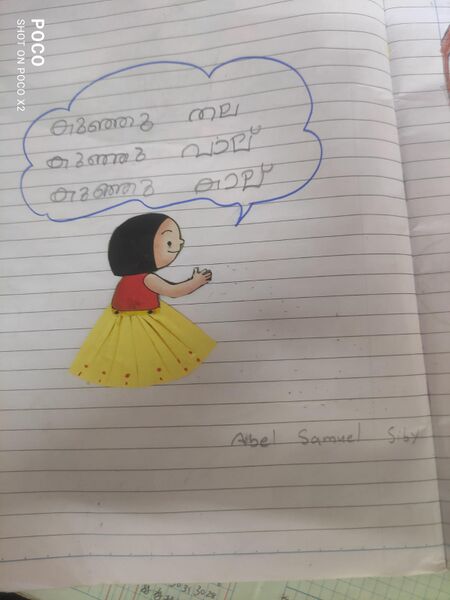 POCO
SHOT ON POCO X2
കുഞ്ഞു തല
കുഞ്ഞു വാല്
കുഞ്ഞു കാല്
Abel Samuel Siby